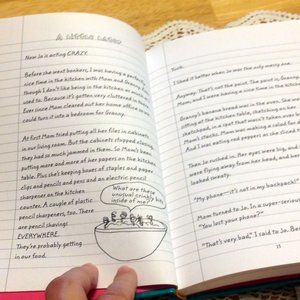 A LITTLE LATER
Now Jo is acting CRAZY.
Before she went bonkers, I was having a perfectly
nice time in the kitchen with Mom and Granny. Even
though I don't like being in the kitchen as much as I
used to. Because it's gotten very cluttered in there
Ever since Mom cleared out her home office so we
could turn it into a bedroom for Granny.
At first Mom tried putting all her files in cabinets
in our living room. But the cabinets stopped closing,
they had so much jammed in them. So Mom's been
putting more and more of her papers on the kitchen
table. Plus she's keeping boxes of staples and paper
clips and pencils and pens and an electric pencil
sharpener on the kitchen
counter. A couple of plastic
pencil sharpeners, too. There
are pencil shavings
EVERYWHERE.
They're probably getting
in our food.
What are these
unusual, crinkly bits
inside of me?
Yuck.
I liked it better when Jo was the only messy one.
Anyway. That's not the point. The point is, Granny,
Mom, and I were having a nice time in the kitchen.
Granny's banana bread was in the oven. She was
sitting at the kitchen table, sketching on her
sketchpad, in a spot that wasn't taken over by
Mom's stacks. Mom was making a salad for dinner.
And I was eating red peppers as she sliced them.
Then Jo rushed in. Her eyes were big, and
were flying away from her head, and her
looked sweaty.
"My phone—it's not in my backpack!"
Mom turned to Jo. In a super-serious
"You lost your phone?"
"That's very bad," I said to Jo. Because